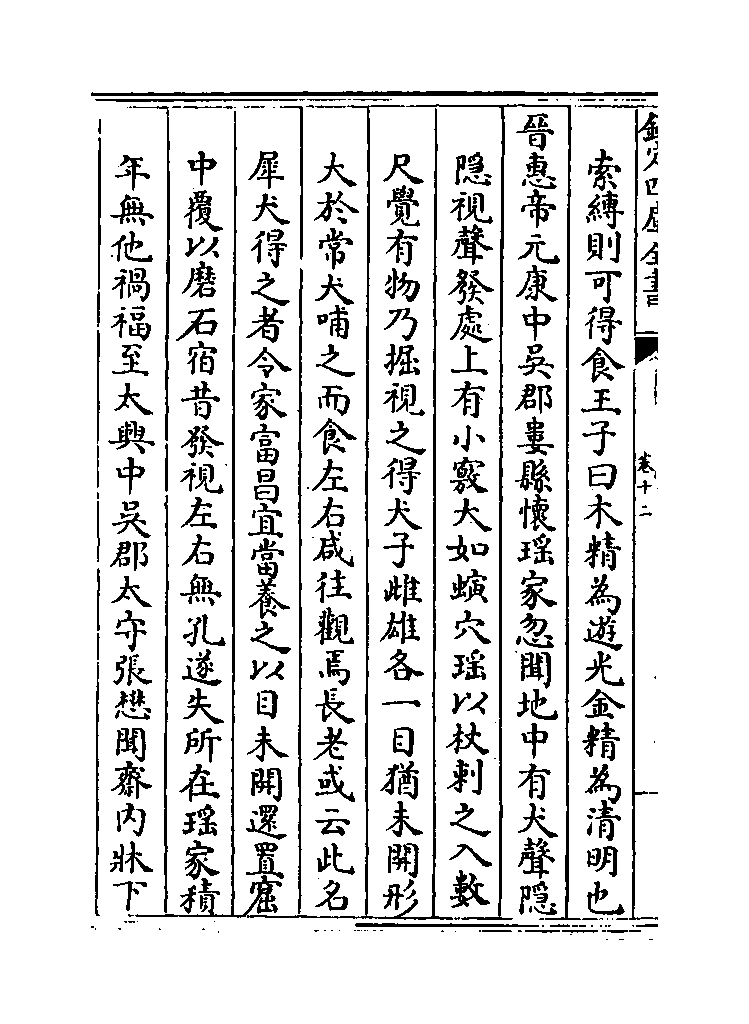 欽定四庫全書
卷十二
索縛則可得食王子曰木精為遊光金精為清明也
晉惠帝元康中吳郡婁縣懷瑶家忽聞地中有犬聲隱
隱視聲發處上有小竅大如螾穴瑶以杖刺之入數
尺覺有物乃掘視之得犬子雌雄各一目猶未開形
大於常犬哺之而食左右咸往觀焉長老或云此名
犀犬得之者令家富昌宜當養之以目未開還置窟
中覆以磨石宿昔發視左右無孔遂失所在瑶家積
年無他禍福至太興中吳郡太守張懋聞齋内牀下